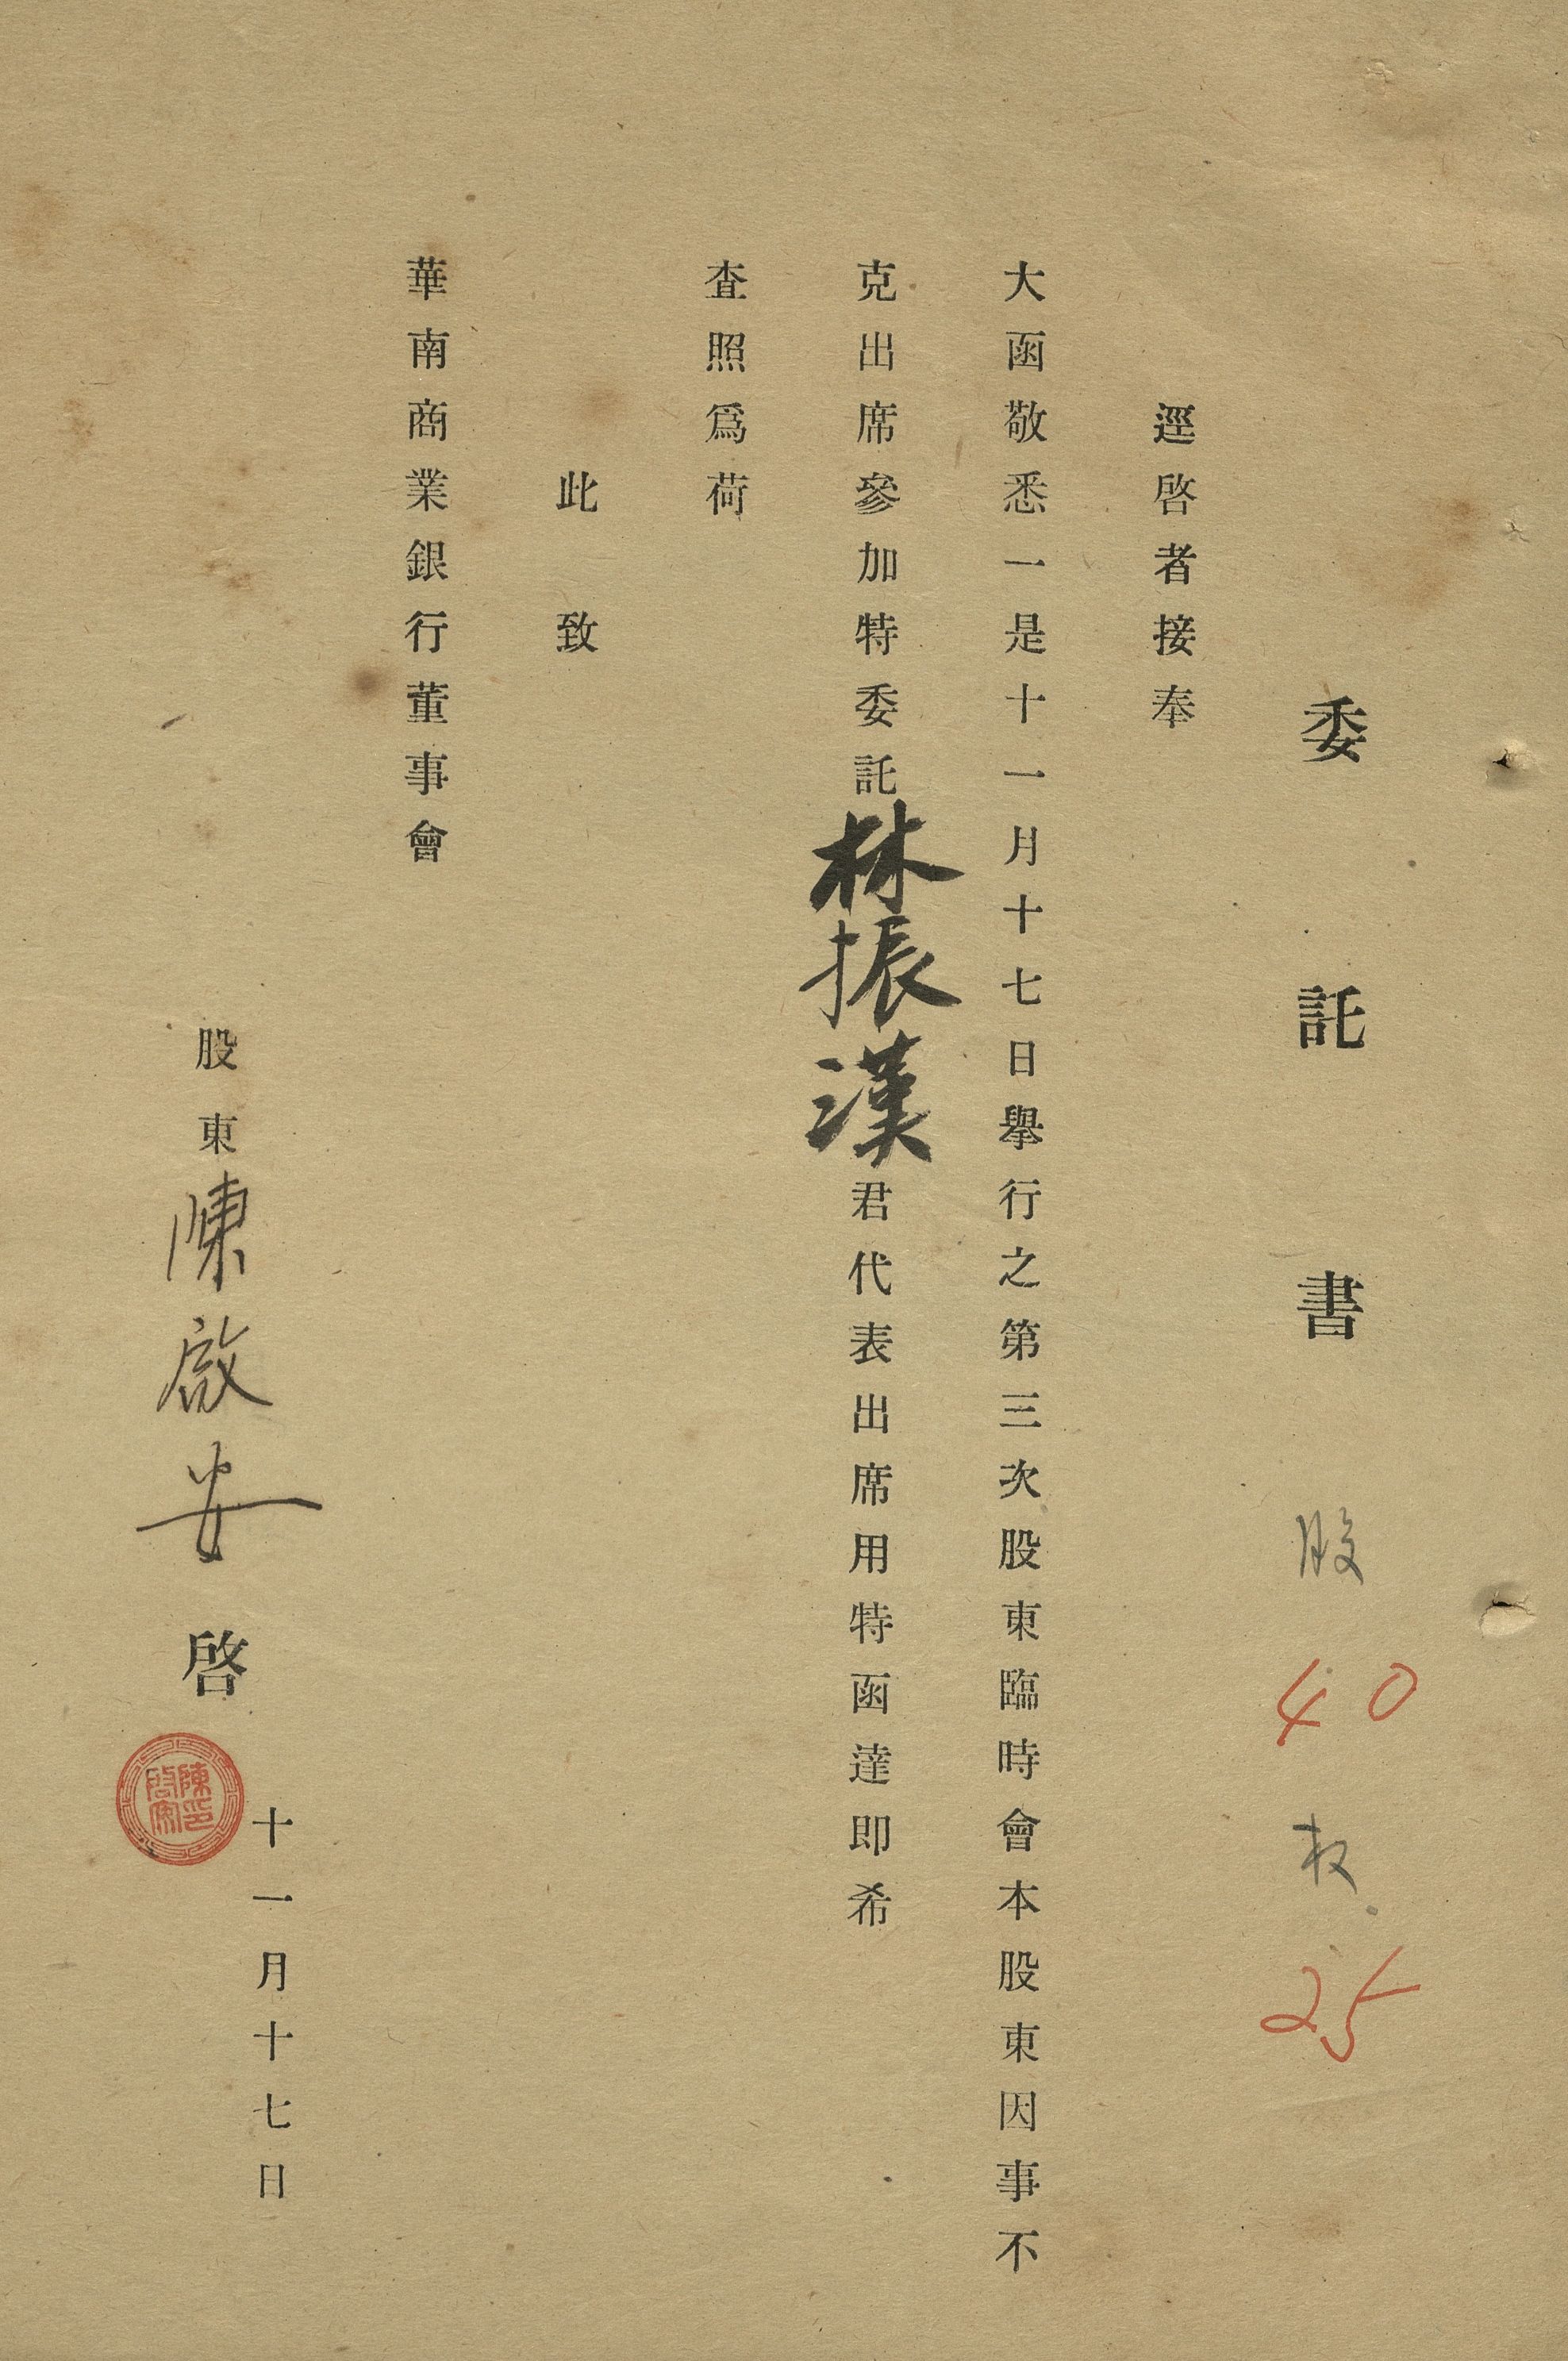 委託書 股 40 权 25
逕啓者接奉
大函敬悉一是十一月十七日舉行之第三次股東臨時會本股東因事不
克出席參加特委託林振漢君代表出席用特函達即希
査照爲荷
此致
華南商業銀行董事會
十一月十七日
股東陳啟安啓